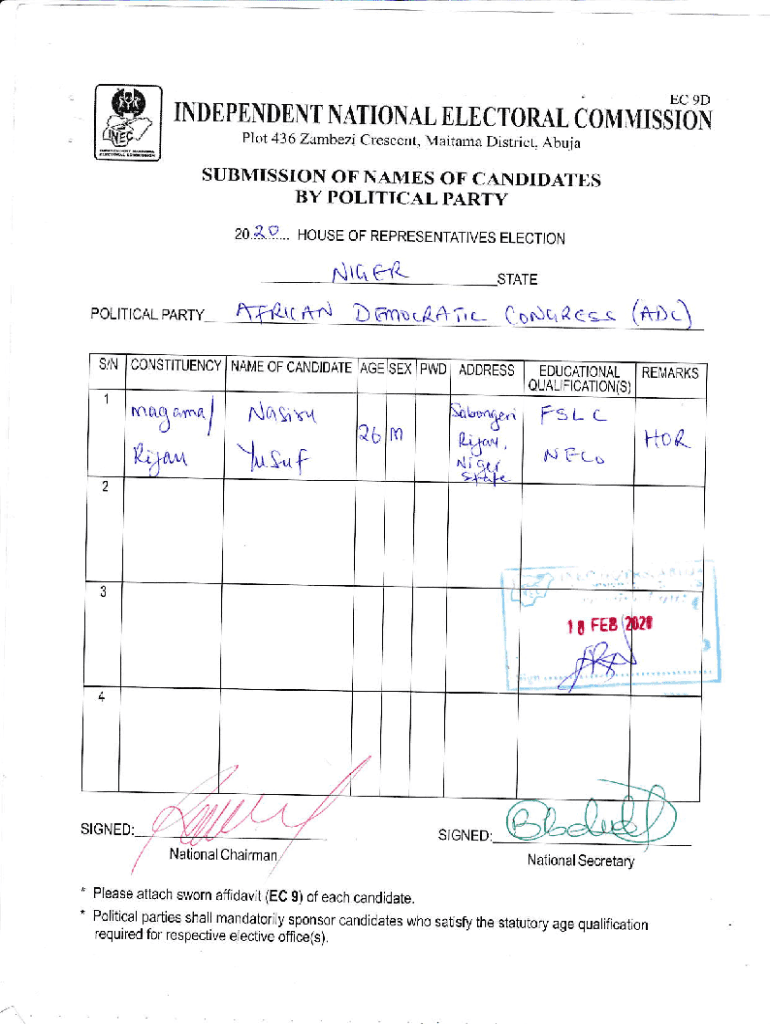 EC 9D
INEC
INDEPENDENT NATIONAL ELECTORAL COMMISSION
Plot 436 Zambezi Crescent, Maitama District, Abuja
SUBMISSION OF NAMES OF CANDIDATES
BY POLITICAL PARTY
20 20 ... HOUSE OF REPRESENTATIVES ELECTION
NIGER STATE
POLITICAL PARTY AFRICAN DEMOCRATIC CONGRESS (ADC)
S/N CONSTITUENCY NAME OF CANDIDATE AGE SEX PWD ADDRESS EDUCATIONAL QUALIFICATION(S) REMARKS
1 magama/ Rijau Nasiru Yusuf 26 M Sabongeri Rijau, Niger state FSLC NECO HOR
2
3
18 FEB
4
SIGNED:
National Chairman
SIGNED:
National Secretary
* Please attach sworn affidavit (EC 9) of each candidate.
* Political parties shall mandatorily sponsor candidates who satisfy the statutory age qualification
required for respective elective office(s).